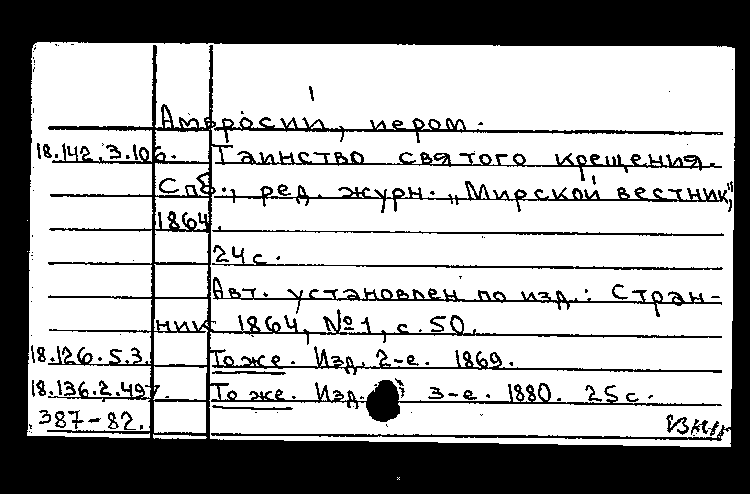 Амвросий, иером.
18.142.3.106. Таинство святого крещения.
Спб., ред. журн. „Мирской вестник",
1864.
24 с.
Авт. установлен по изд.: Стран-
ник 1864, №1, с. 50.
18.126.5.3. То же. Изд. 2-е. 1869.
18.136.2.497. То же. Изд. 3-е. 1880. 25 с.
387-82.